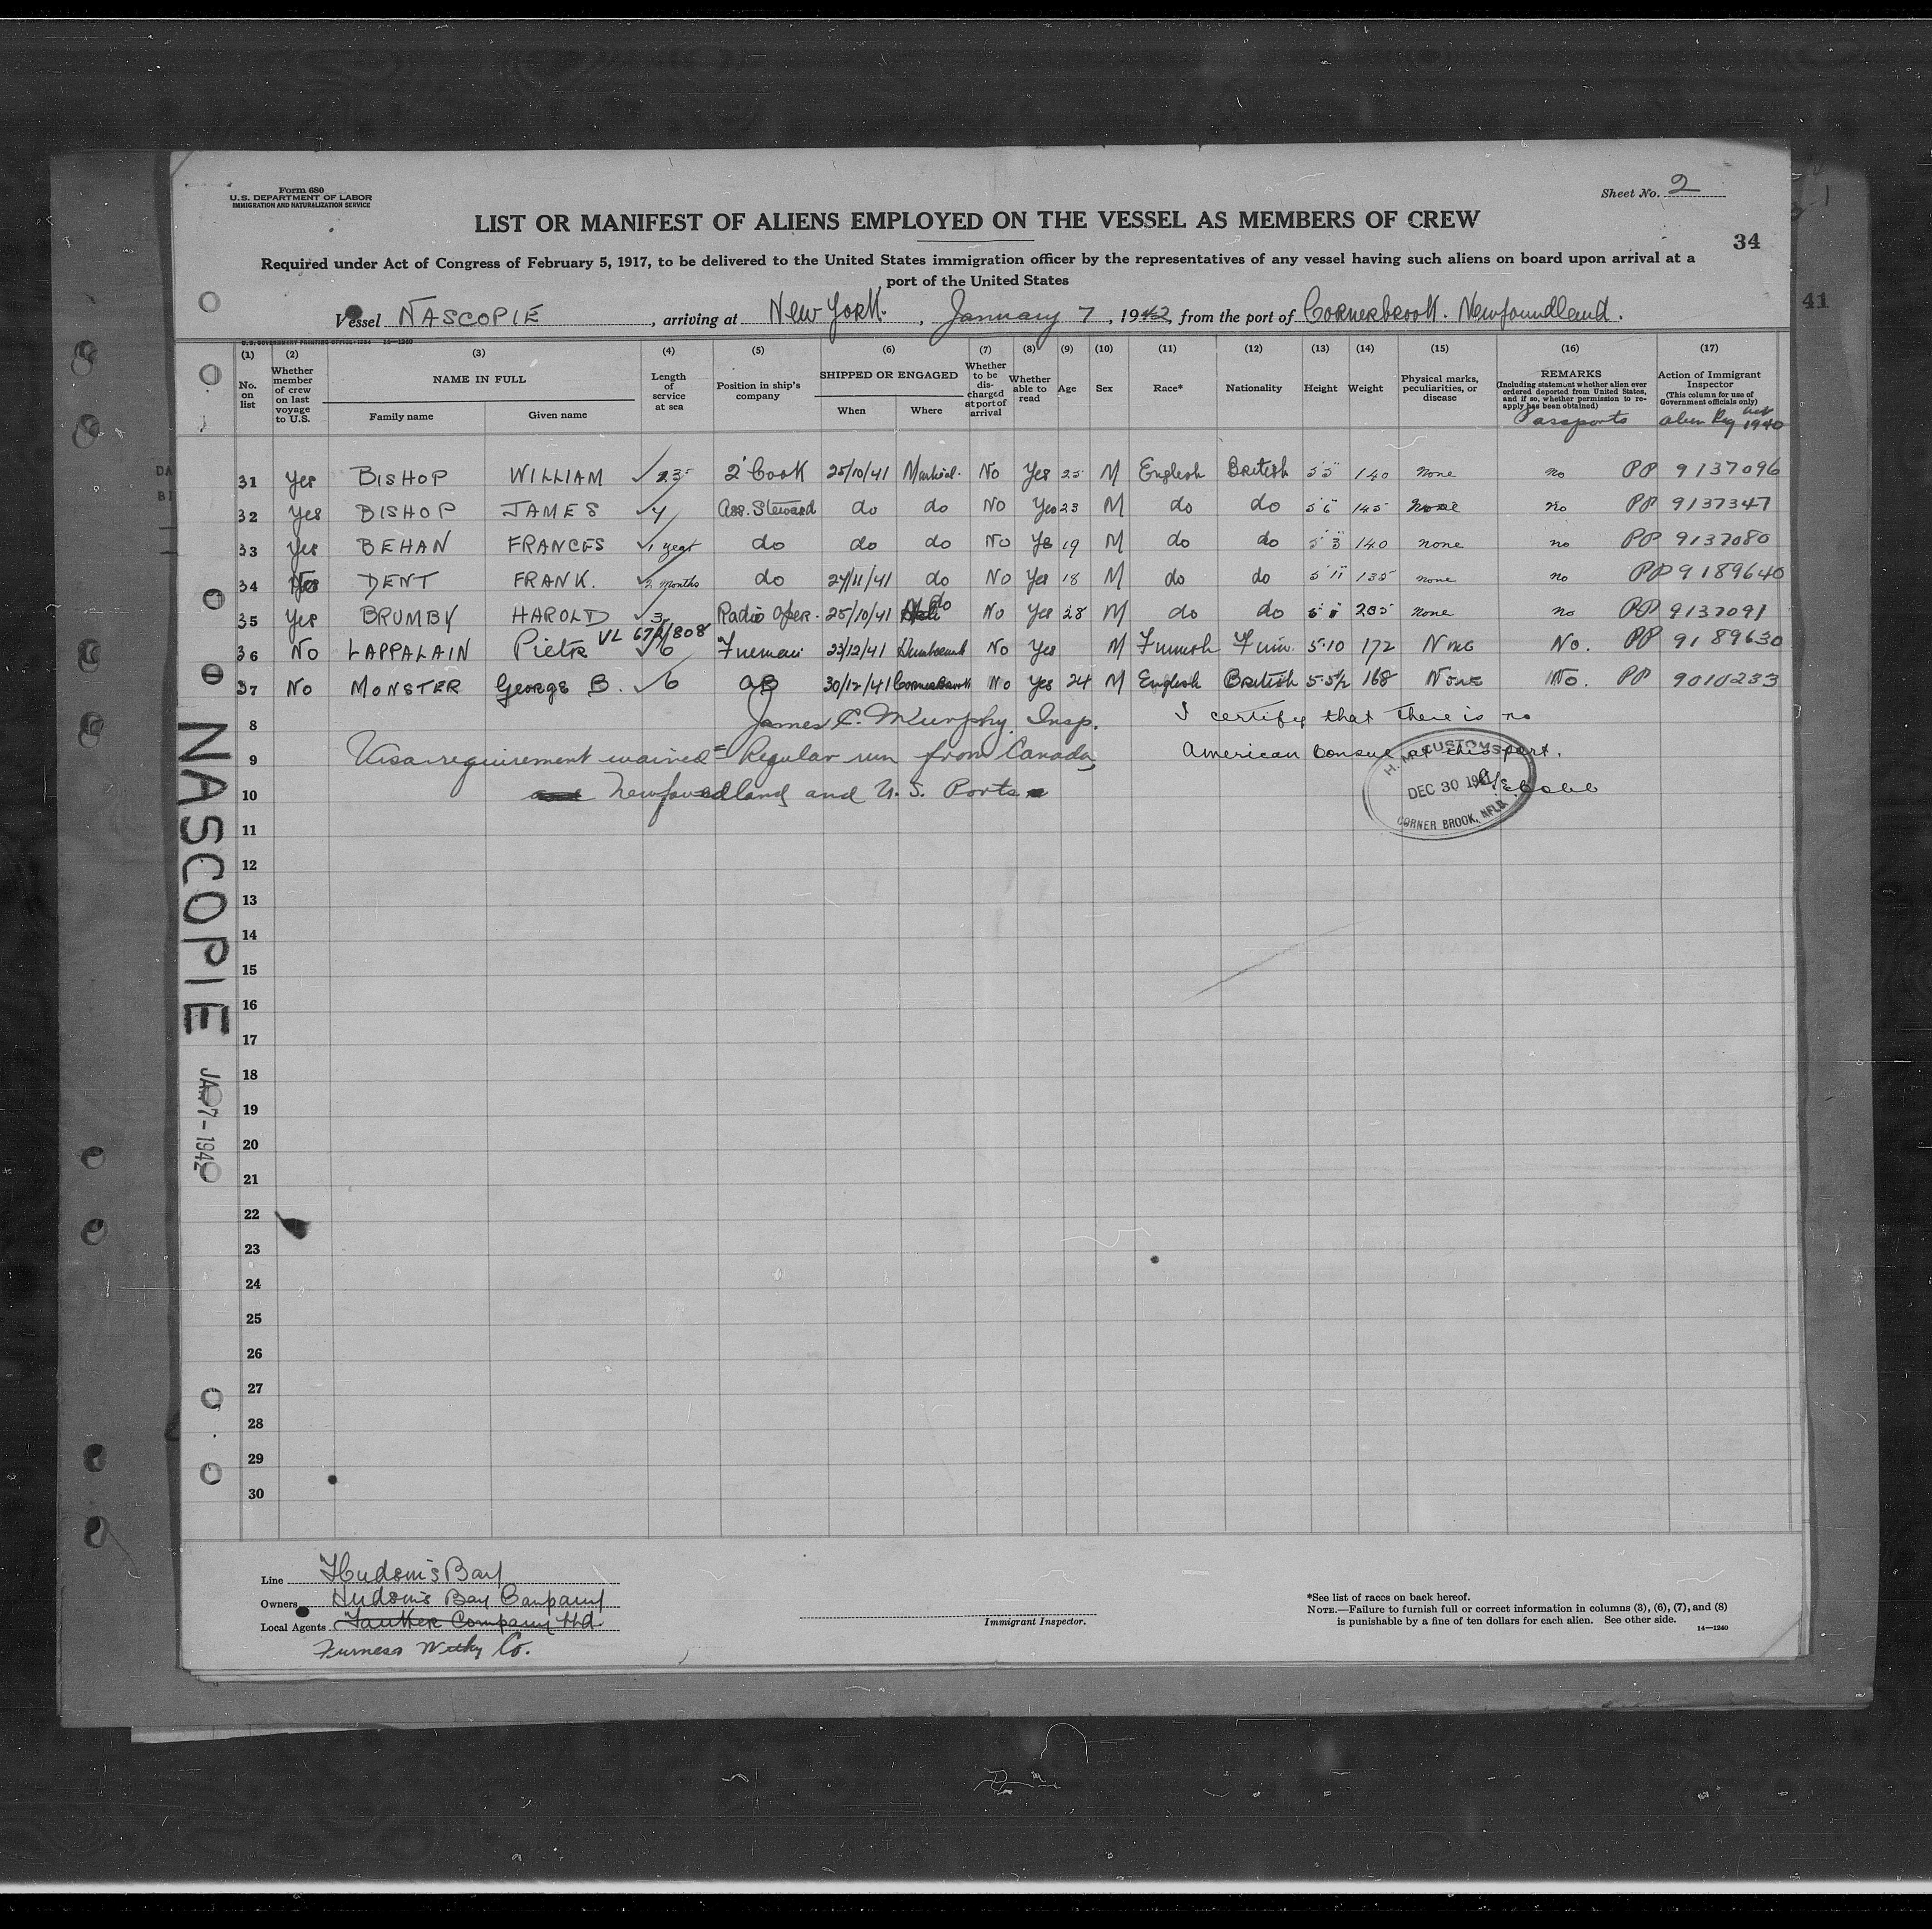 Form 680
U.S. DEPARTMENT OF LABOR
IMMIGRATION AND NATURALIZATION SERVICE
Sheet No. 2
LIST OR MANIFEST OF ALIENS EMPLOYED ON THE VESSEL AS MEMBERS OF CREW
34
Required under Act of Congress of February 5, 1917, to be delivered to the United States immigration officer by the representatives of any vessel having such aliens on board upon arrival at a
port of the United States
41
Vessel NASCOPIE, arriving at New York, January 7, 1942, from the port of Cornerbrook. Newfoundland.
U.S. GOVERNMENT PRINTING OFFICE: 1934 14—1240
(1) (2) (3) (4) (5) (6) (7) (8) (9) (10) (11) (12) (13) (14) (15) (16) (17)
No. on list
Whether member of crew on last voyage to U.S.
NAME IN FULL
Family name
Given name
Length of service at sea
Position in ship's company
SHIPPED OR ENGAGED
When
Where
Whether to be discharged at port of arrival
Whether able to read
Age
Sex
Race*
Nationality
Height
Weight
Physical marks, peculiarities, or disease
REMARKS
(Including statement whether alien ever ordered deported from United States, and if so, whether permission to reapply has been obtained)
Passports
Action of Immigrant Inspector
(This column for use of Government officials only)
Alien Reg Act 1940
31 Yes BISHOP WILLIAM 2' Cook 25/10/41 Montreal. No Yes 25 M English British 5 5 140 None no PP 9137096
32 Yes BISHOP JAMES 4 Ass. Steward do do No Yes 23 M do do 5 6 145 None no PP 9137347
33 Yes BEHAN FRANCES 1 year do do do No Yes 19 M do do 5 3 140 none no PP 9137080
34 No DENT FRANK. 2 months do 24/11/41 do No Yes 18 M do do 5 11 135 none no PP 9189640
35 Yes BRUMBY HAROLD 3 Radio Oper. 25/10/41 do No Yes 28 M do do 205 None no PP 9137091
VL 672/808
36 No LAPPALAIN Pietr 6 Fireman 23/12/41 No Yes M Finnish Finn. 5-10 172 None No. PP 9189630
37 No MONSTER George B. 6 AB 30/12/41 Cornerbrook No Yes 24 M English British 5-5½ 168 None No. PP 9010233
8 James C. Murphy, Insp. I certify that there is no
9 Visa requirement waived = Regular run from Canada, American Consul at this port.
10 Newfoundland and U.S. Ports
H. M. CUSTOMS
DEC 30 1941
CORNER BROOK, NFLD.
11
12
13
14
15
16
17
18
19
20
21
22
23
24
25
26
27
28
29
30
NASCOPIE
JAN 7-1942
Line Hudson's Bay
Owners Hudson's Bay Company
Local Agents Company Ltd.
Furness Withy Co.
Immigrant Inspector.
*See list of races on back hereof.
NOTE.—Failure to furnish full or correct information in columns (3), (6), (7), and (8)
is punishable by a fine of ten dollars for each alien. See other side.
14—1240